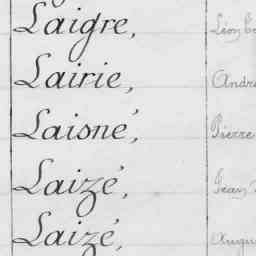 Laigre, Léon
Lairie, André
Laisné, Pierre
Laizé, Jean
Laizé,